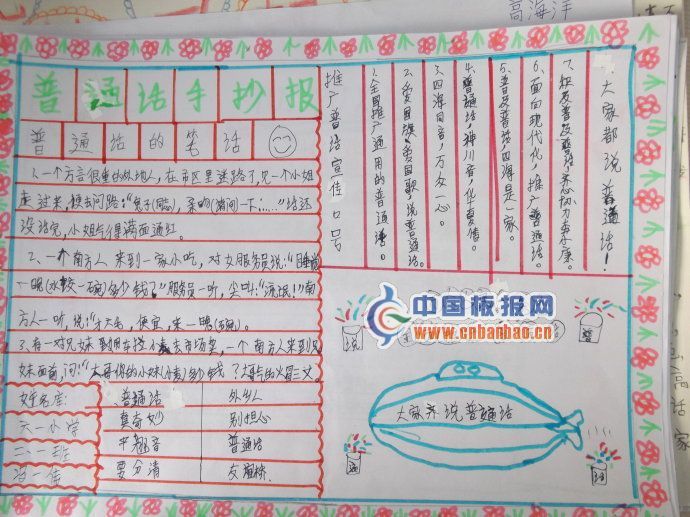 高海洋
普通话手抄报
普通话的笑话
1、一个方言很重的外地人,在市区里迷路了,见一个小姐
走过来,便去问路:
没话完,小姐
满面通红。
2、一个南方人来到一家小吃,对女服务员说:“睡觉
一晚(水饺一碗)多少钱?”服务员一听,尖叫:“流氓!”南
方人一听,说:
便宜,来一
3、有一对兄妹
去市场卖,一个南方人来到兄
妹面前,问:
多少钱
六一小学
二、一班
冯一倩
普通话
外乡人
真奇妙
别担心
平翘音
普通话
要分清
友谊桥
推广普话宣传口号
1、全国推广通用的普通话。
2、爱国旗,爱国歌,说普通话。
3、四海同音,万众一心。
4、普通话,神州音,华夏情。
5、普及普话,四海是一家。
6、面向现代化,推广普通话。
7、积极普及普话,齐心协力奔小康。
大家都说普通话!
中国板报网
www.cnbanbao.cn
说
普
大家齐说普通话
话